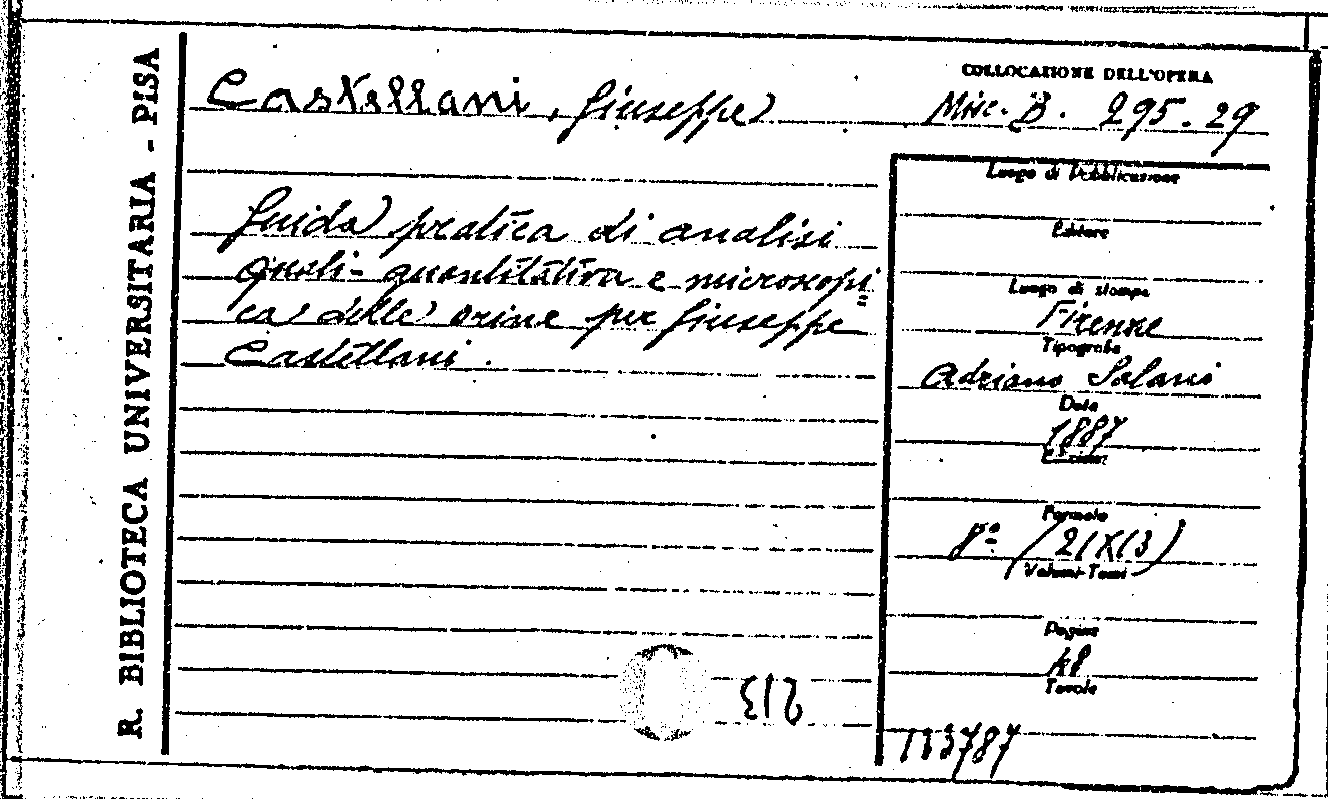 R. BIBLIOTECA UNIVERSITARIA - PISA
Castellani, Giuseppe
COLLOCAZIONE DELL'OPERA
Misc. B. 295.29
Guida pratica di analisi
quali-quantitativa e microscopi=
ca delle orine per Giuseppe
Castellani.
Luogo di Pubblicazione
Editore
Luogo di stampa
Firenze
Tipografia
Adriano Salani
Data
1887
Formato
8º (21X13)
Volumi-Tomi
Pagine
48
Tavole
213
113787